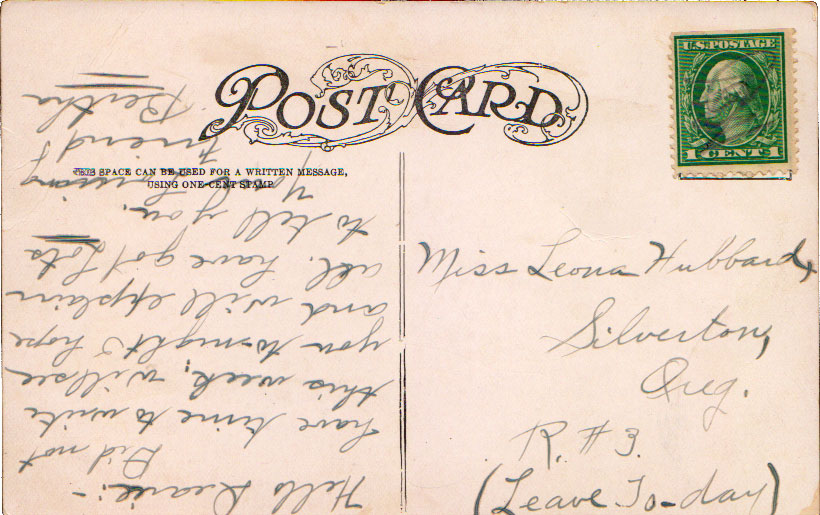 POST CARD
U.S. POSTAGE
1 CENT 1
THIS SPACE CAN BE USED FOR A WRITTEN MESSAGE,
USING ONE-CENT STAMP
Hello Dearie:-
Did not
have time to write
this week, will see
you to-night I hope
and will explain
all. have got Lots
to tell you.
Your Loving
friend
Bertha
Miss Leona Hubbard,
Silverton,
Oreg.
R. #3.
(Leave To-day)